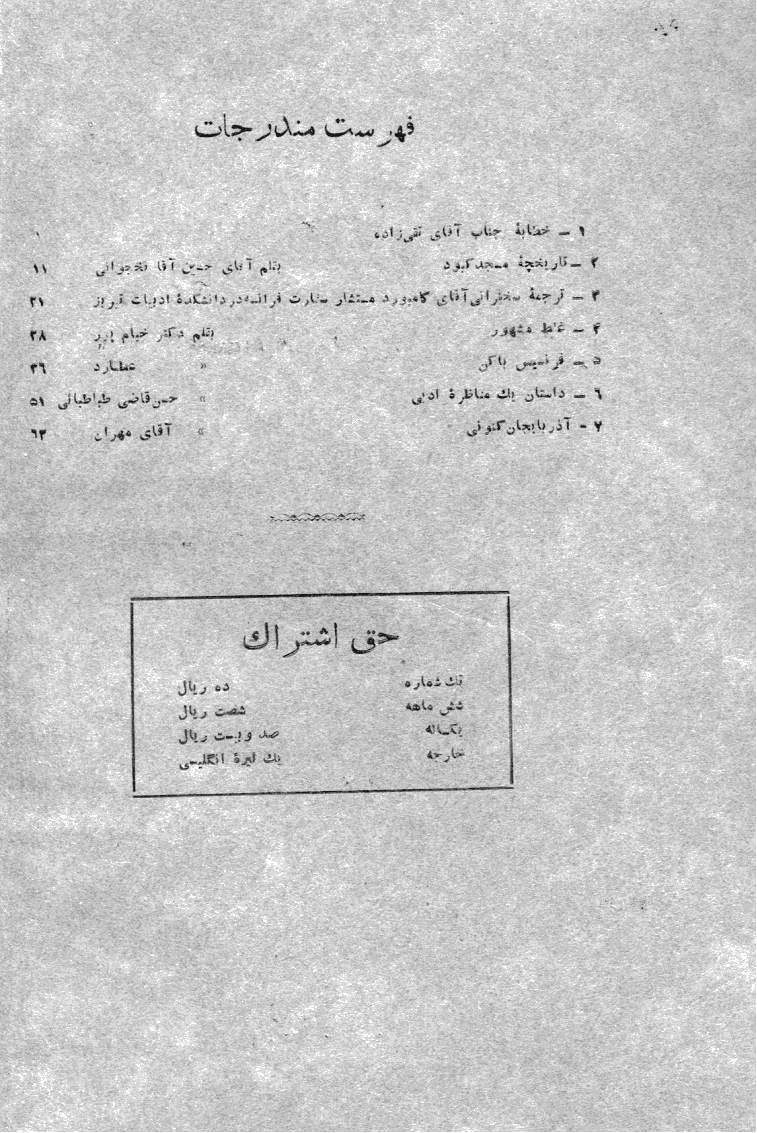 فهرست مندرجات
۱ ـ خطابهٔ جناب آقای تقی‌زاده ۱
۲ ـ تاریخچهٔ مسجد کبود بقلم آقای حسین آقا نخجوانی ۱۱
۳ ـ ترجمهٔ سخنرانی آقای کامبورد مستشار سفارت فرانسه در دانشکدهٔ ادبیات تبریز ۲۱
۴ ـ غلط مشهور بقلم دکتر خیام پور ۲۸
۵ ـ فرنسیس باکن » عطارد ۳۶
۶ ـ داستان یك مناظرهٔ ادبی » حسن قاضی طباطبائی ۵۱
۷ ـ آذربایجان کنونی » آقای مهران ۶۳
حق اشتراك
تك شماره ده ریال
شش ماهه شصت ریال
یکساله صد و بیست ریال
خارجه یك لیرهٔ انگلیسی